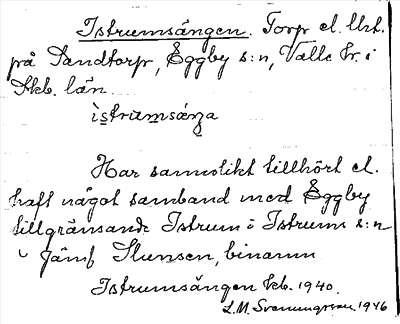 Istrumsängen. Torp el. Utt.
på Sandtorp, Eggby s:n, Valle hr. i
Skb. län.
ìstrumsáŋa
Har sannolikt tillhört el.
haft något samband med Eggby
tillgränsande Istrum i Istrums s:n
Jämf Slunsen, binamn
Istrumsängen kb. 1940.
L.M. Svenungsson. 1946